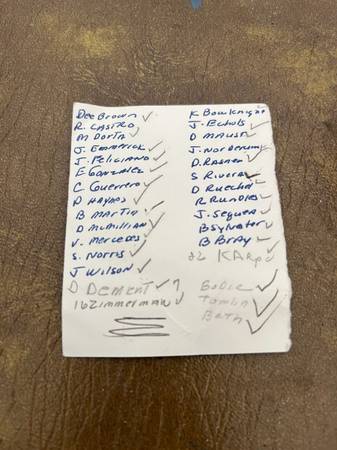 Dee Brown
R. Castro
M Dorta
J. Emmerick
J. Feliciano
E Gonzalez
C Guerrero
D Haynes
B Martin
D McMillian
V. Mercedes
S. Norris
J Wilson
D Dement
16 Zimmerman
K Bouknight
J. Echols
D Maust
J. Norderum
D. Rasner
S Rivera
D Ruechel
R Rundles
J. Seguea
B Sylvester
B Bray
22 Karp
Bodie
Tomba
Beth